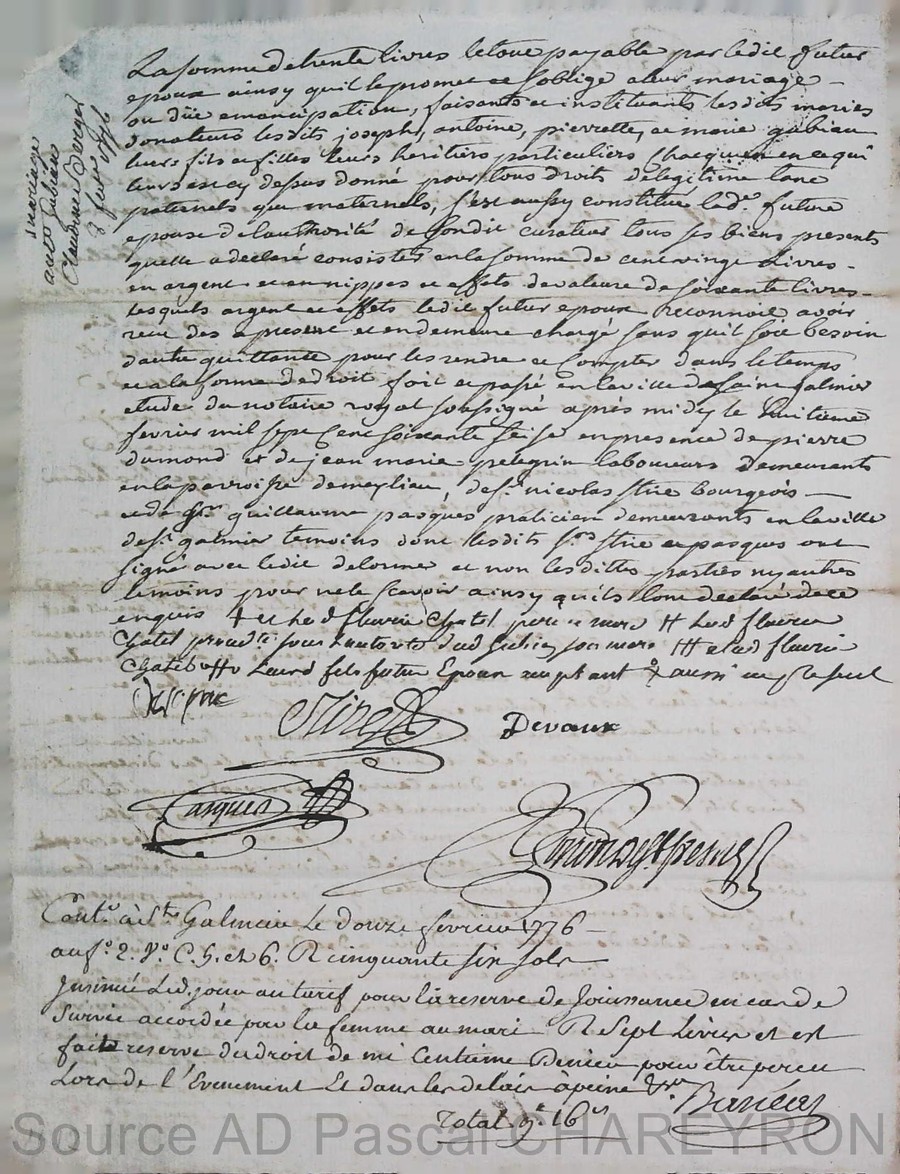 mariage
antoine gubian
Claudine Berger
8 fevr 1776
La somme de trente livres le tout payable par ledit futur
epoux ainsy quil le promet et soblige a leur mariage
ou düe emancipation, faisants et instituants lesdits mariés
donateurs lesdits joseph, antoine, pierrette, et marie gubian
leurs fils et filles leurs heritiers particuliers chacquun en ce qui
leurs est cy dessus donné pour tous droits de legitime tant
paternels que maternels, s'est aussy constitué lad.e future
epouse de lauthorité de sondit curateur tous ses biens presents
quelle a declaré consister en la somme de cent vingt Livres
en argent et en nippes et effets de valeur de soixante livres
lesquels argent et effets ledit futur epoux reconnoit avoir
recu des apresent et en demeure chargé sans quil soit besoin
dautre quittance pour les rendre et Compter dans le temps
et a la forme de droit fait et passé en la ville de saint galmier
etude du notaire royal soussigné après midy le huitieme
fevrier mil sept Cent soixante seise en presence de pierre
dumond et de jean marie pelegrin laboureurs demeurants
en la parroisse de meylieu, de sr. nicolas stire bourgeois
et de sr. guillaume pasques praticien demeurants en la ville
de st. galmier temoins dont lesdits srs stire et pasques ont
signé avec ledit delorme et non lesdittes parties ny autres
temoins pour ne le scavoir ainsy quils lont declaré de ce
enquis et de lad fleurie Chatel pere et mere # lad fleurie
Chatel procedte sous lautorité dud gubien son mari ## et lad fleurie
Chatel laurd fils futur Epoux acceptant aussi
Stire
Devaux
Pasques
Cont.é à St. Galmier Le douze fevrier 1776
au f.o 2. V.o C. 5. et 6. R cinquante six sols
Insinué Led. jour au tarif pour la reserve de Joissance en cas de
Survie accordée par la femme au mari R Sept Livres et est
faite reserve du droit de mi Centieme Denier pour être percu
Lors de l'Evenement Et dans les delais à peine &ra
Total 9# 16s
Source AD Pascal CHAREYRON